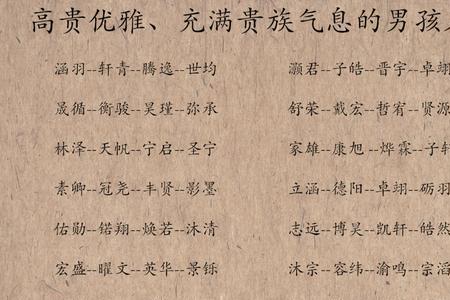 高贵优雅、充满贵族气息的男孩
涵羽--轩青--腾逸--世均 灏君--子皓--晋宇--卓翊
晟循--衡骏--昊瑾--弥承 舒荣--戴宏--哲宥--贤源
林泽--天帆--宁启--圣宁 家雄--康旭--烨霖--子轩
素卿--冠尧--丰贤--影墨 立涵--德阳--卓翊--砺羽
佑勋--锘翔--焕若--沐清 志远--博昊--凯轩--皓然
宏盛--曜文--英华--景铄 沐宗--容纬--渝鸣--宗滔